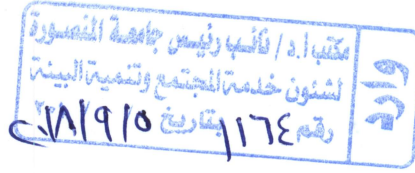 وارد
مكتب ا.د/ نائب رئيس جامعة المنصورة
لشئون خدمة المجتمع وتنمية البيئة
رقم ١١٦٤ بتاريخ ٢٠١٨/٩/٥